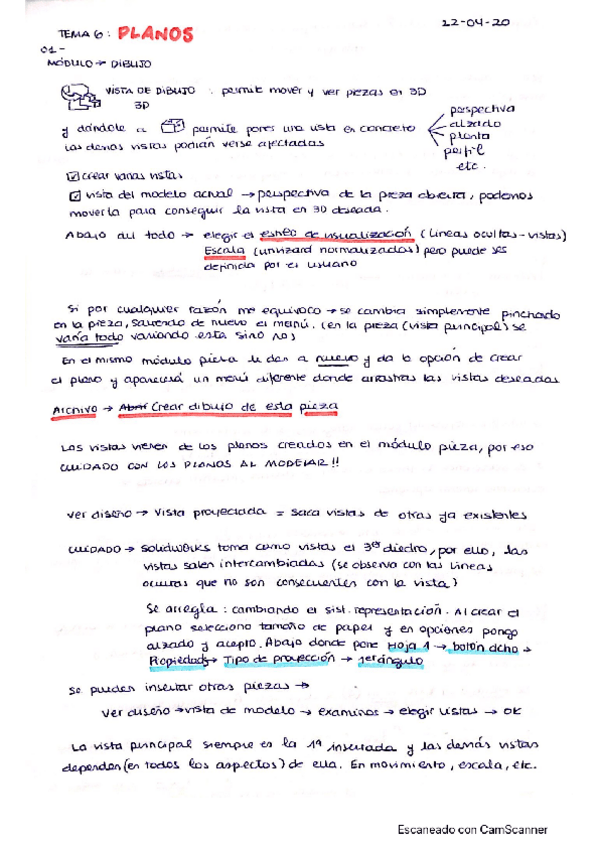 22-04-20
TEMA 6: PLANOS
01-
MÓDULO → DIBUJO
VISTA DE DIBUJO : permite mover y ver piezas en 3D
3D
y dándole a permite poner una vista en concreto
las demás vistas podrían verse afectadas
perspectiva
alzado
planta
perfil
etc.
crear varias vistas
vista del modelo actual → perspectiva de la pieza abierta, podemos
moverla para conseguir la vista en 3D deseada.
Abajo del todo → elegir el estilo de visualización (líneas ocultas-vistas)
Escala (unizard normalizados) pero puede ser
definida por el usuario
Si por cualquier razón me equivoco → se cambia simplemente pinchado
en la pieza, saliendo de nuevo el menú. (en la pieza (vista principal) se
varía todo variando esta sino no)
En el mismo módulo pieza le dan a nuevo y da la opción de crear
el plano y aparecerá un menú diferente donde arrastras las vistas deseadas
Archivo → Abrir Crear dibujo de esta pieza
Las vistas vienen de los planos creados en el módulo pieza, por eso
CUIDADO CON LOS PLANOS AL MODELAR!!
Ver diseño → Vista proyectada = Saca vistas de otras ya existentes
CUIDADO → Solidworks toma como vistas el 3er diedro, por ello, las
vistas salen intercambiadas (se observa con las líneas
ocultas que no son consecuentes con la vista)
Se arregla : cambiando el sist. representación. Al crear el
plano selecciono tamaño de papel y en opciones pongo
alzado y acepto. Abajo donde pone Hoja 1 → botón dcho →
Propiedads → Tipo de proyección → 1er ángulo
Se pueden insertar otras piezas →
Ver diseño → vista de modelo → examinar → elegir vistas → OK
La vista principal siempre es la 1ª insertada y las demás vistas
dependen (en todos los aspectos) de ella. En movimiento, escala, etc.
Escaneado con CamScanner